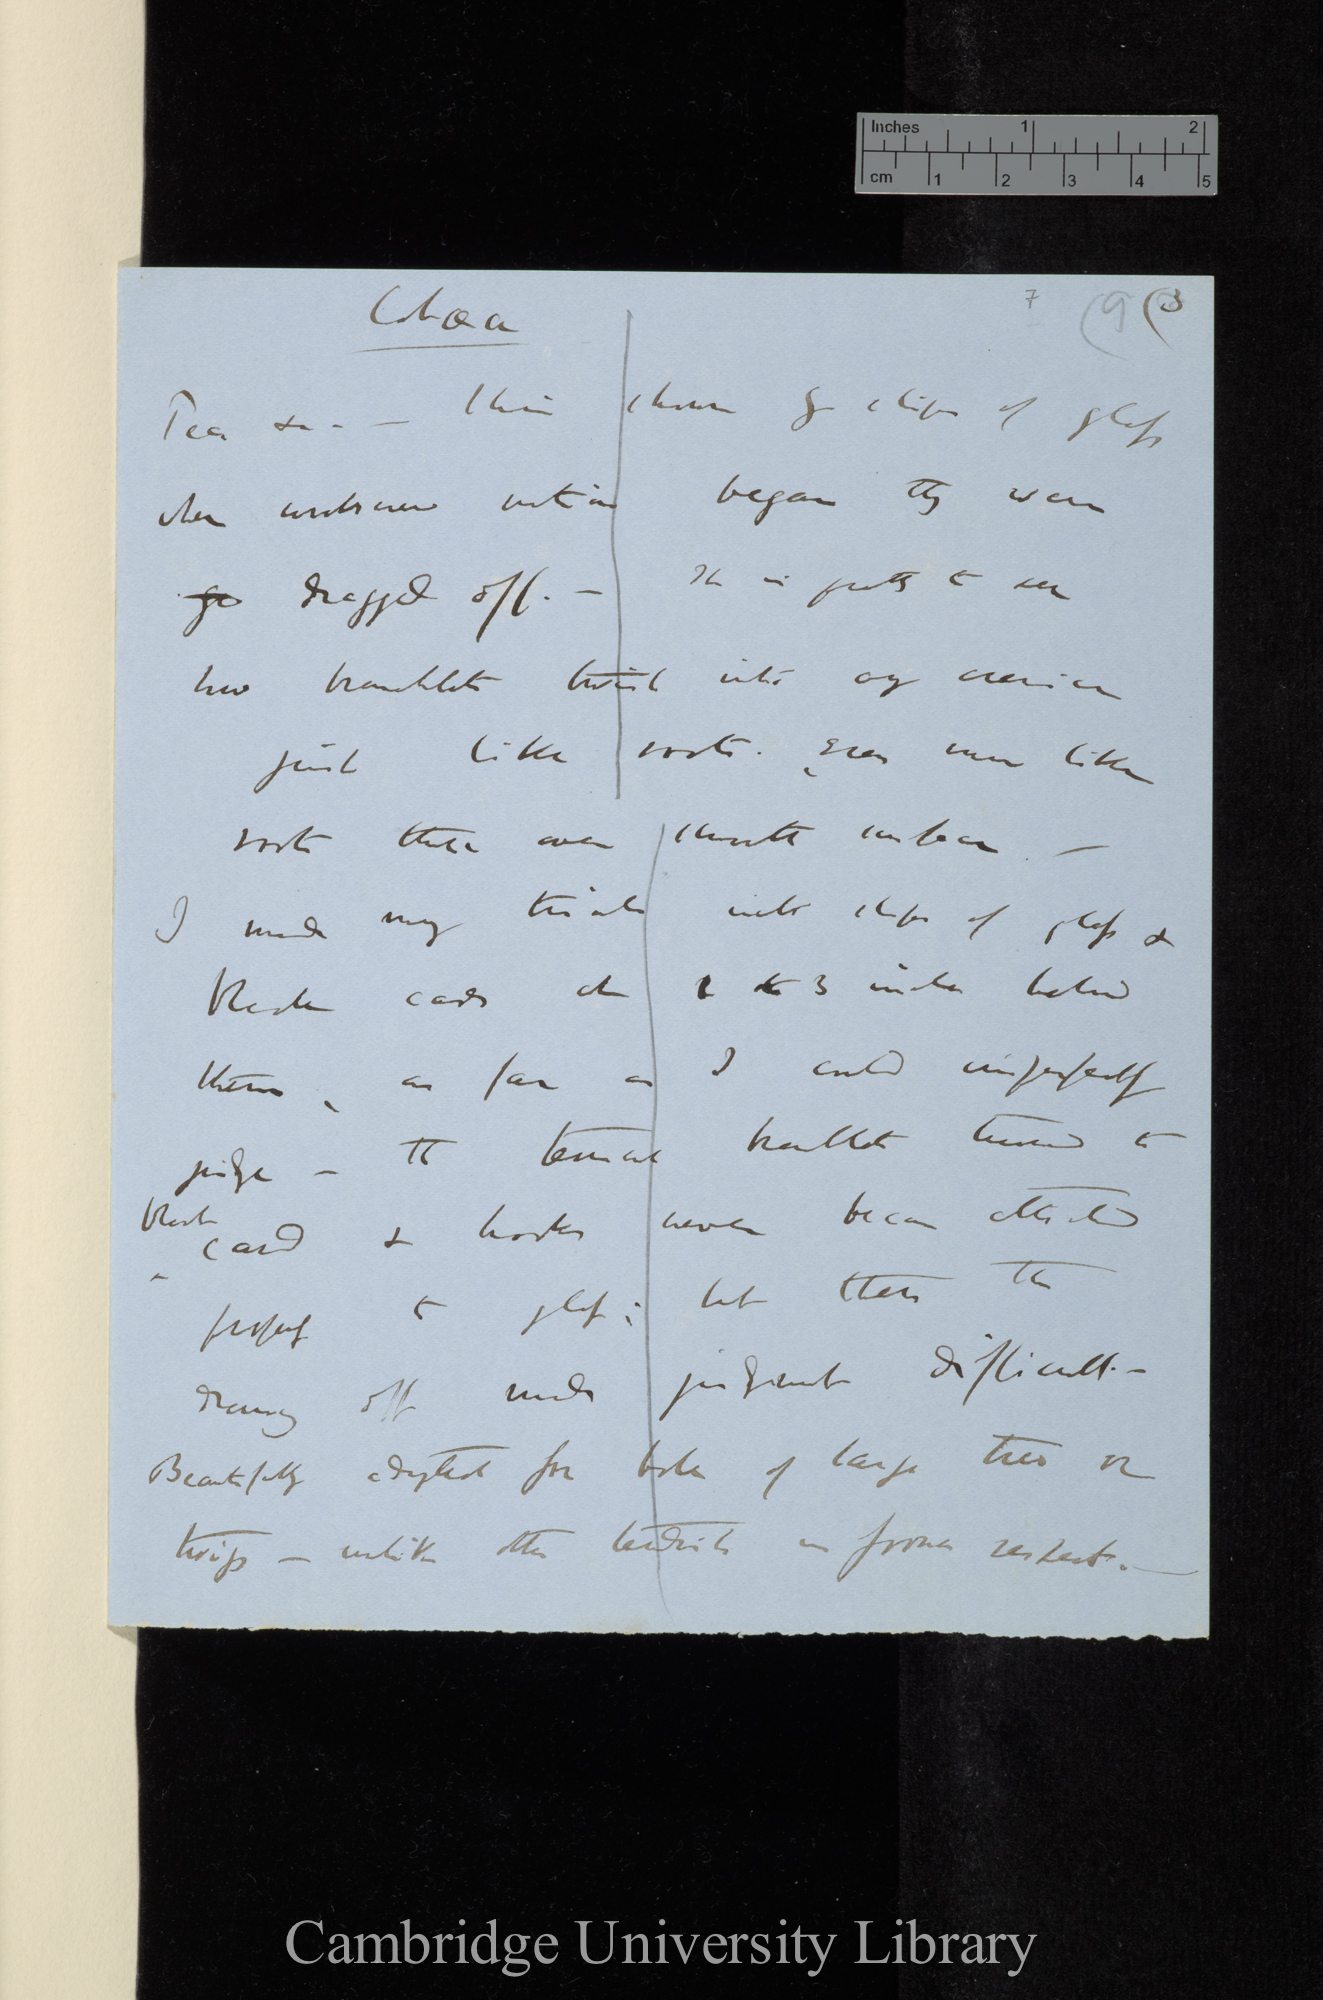 Inches 1 2
cm 1 2 3 4 5
7 (9 (3
Cobæa
Pea &c. — This shown by slips of glass
when movement began they were
go dragged off. — It is pretty to see
how branchlets twist into any crevice
just like roots. Even more like
roots these over smooth surface. —
I made many trials with slips of glass &
black card at 2 to 3 inches behind
them, as far as I could imperfectly
judge — the terminal branchlets turned to
black
card & hooks never became attached
to glass; but then the
off made judgment difficult. —
Beautifully adapted for bark of large trees or
twigs — unlike other tendrils in former respect. —
Cambridge University Library